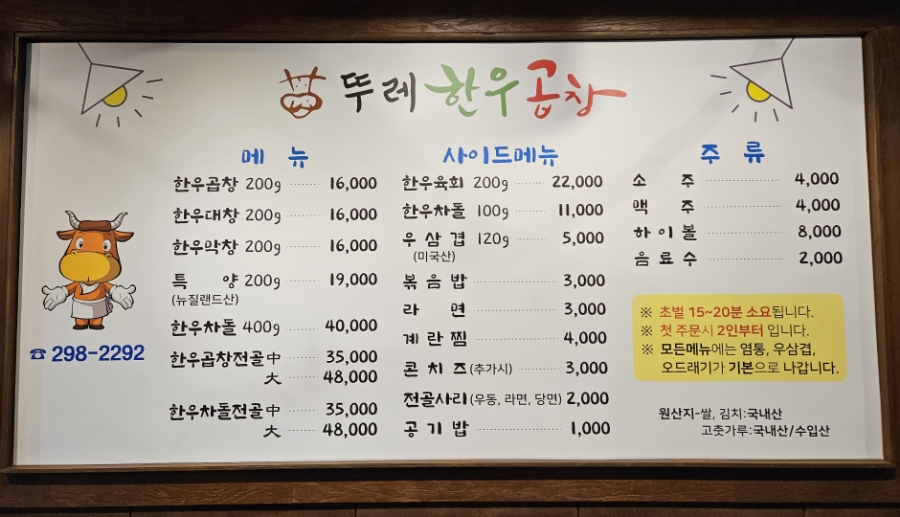 뚜레 한우곱창
메 뉴
한우곱창 200g 16,000
한우대창 200g 16,000
한우막창 200g 16,000
특 양 200g 19,000
(뉴질랜드산)
한우차돌 400g 40,000
한우곱창전골 中 35,000
大 48,000
한우차돌전골 中 35,000
大 48,000
사이드메뉴
한우육회 200g 22,000
한우차돌 100g 11,000
우 삼 겹 120g 5,000
(미국산)
볶 음 밥 3,000
라 면 3,000
계 란 찜 4,000
콘 치 즈 (추가시) 3,000
전골사리 (우동, 라면, 당면) 2,000
공 기 밥 1,000
주 류
소 주 4,000
맥 주 4,000
하 이 볼 8,000
음 료 수 2,000
※ 초벌 15~20분 소요됩니다.
※ 첫 주문시 2인부터 입니다.
※ 모든메뉴에는 염통, 우삼겹,
오드래기가 기본으로 나갑니다.
원산지-쌀, 김치:국내산
고춧가루:국내산/수입산
☎ 298-2292